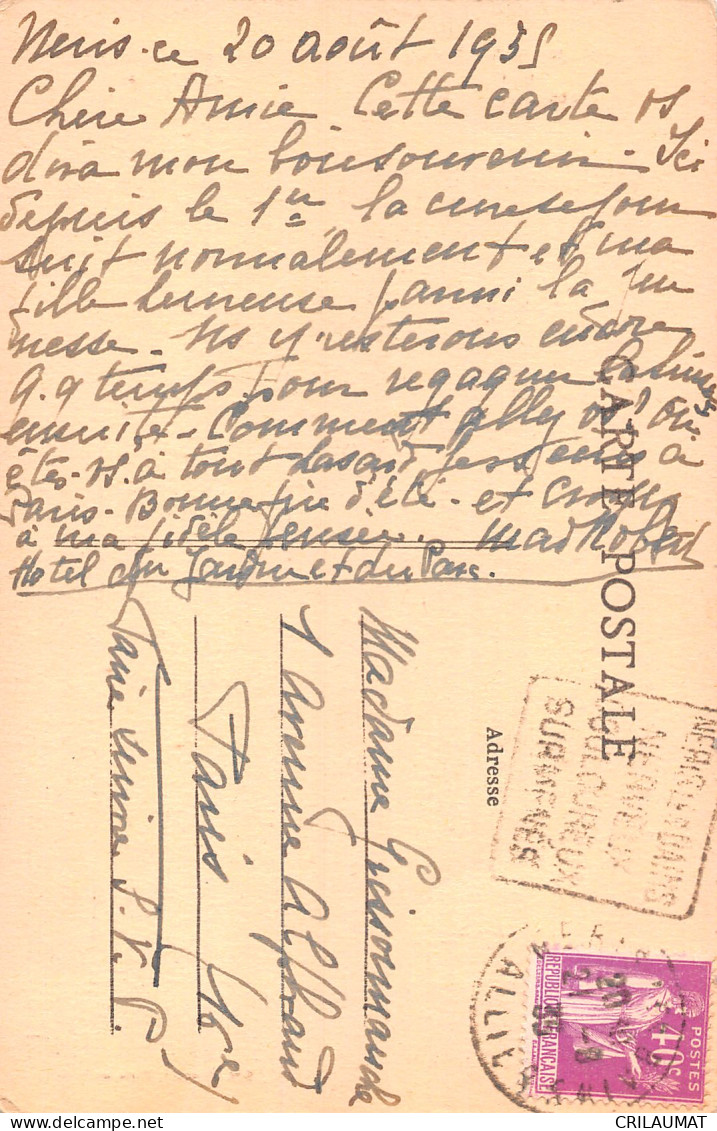 Neris - ce 20 août 1935
Chère Amie Cette carte vs
dira mon bon souvenir - Ici
depuis le 1er, la cure se pour
suit normalement et ma
fille heureuse parmi la jeu
nesse - Ns y resterons encore
q.q temps pour regagner
ensuite - Comment allez vs - Où
êtes-vs. à tout hasard je
Paris - Bonne fin d'été - et croyez
à ma fidèle pensée.
Hotel du Jardin et du Parc.
CARTE POSTALE
Adresse
Madame
1 Avenue Alphand
Paris 16e
Faire suivre S.V.P
NERIS LES BAINS
NERVEUX
DOULOUREUX
SURMENÉS
ALLIER
POSTES
40c
REPUBLIQUE FRANÇAISE
CRILAUMAT